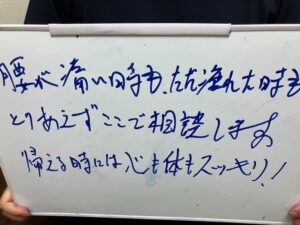 腰が痛い時も、ただ疲れた時も
とりあえずここで相談します
帰る時には心も体もスッキリ!